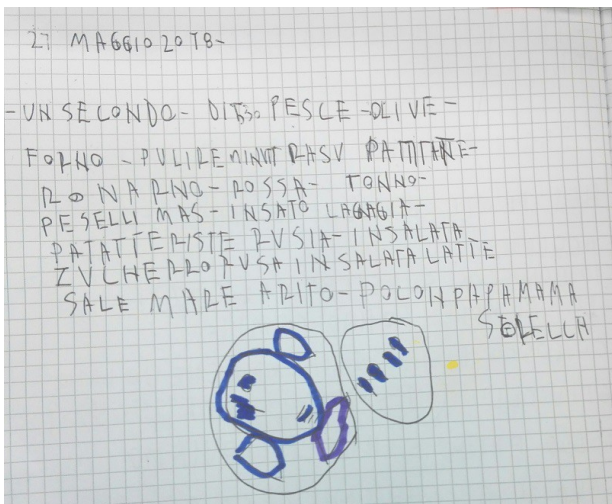 27 MAGGIO 20TB-
-UN SECONDO- DI PESCE-OLIVE-
FORNO - PULIRE MINUT RASU
RONARNO-ROSSA- TONNO-
PESELLI MAS-INSATO LAGAGIA-
PATATTERISTE RUSIA-INSALATA
ZUCHERRO RUSA INSALATA LATTE
SALE MARE ARITO-POLON PAPA MAMA
SORELLA